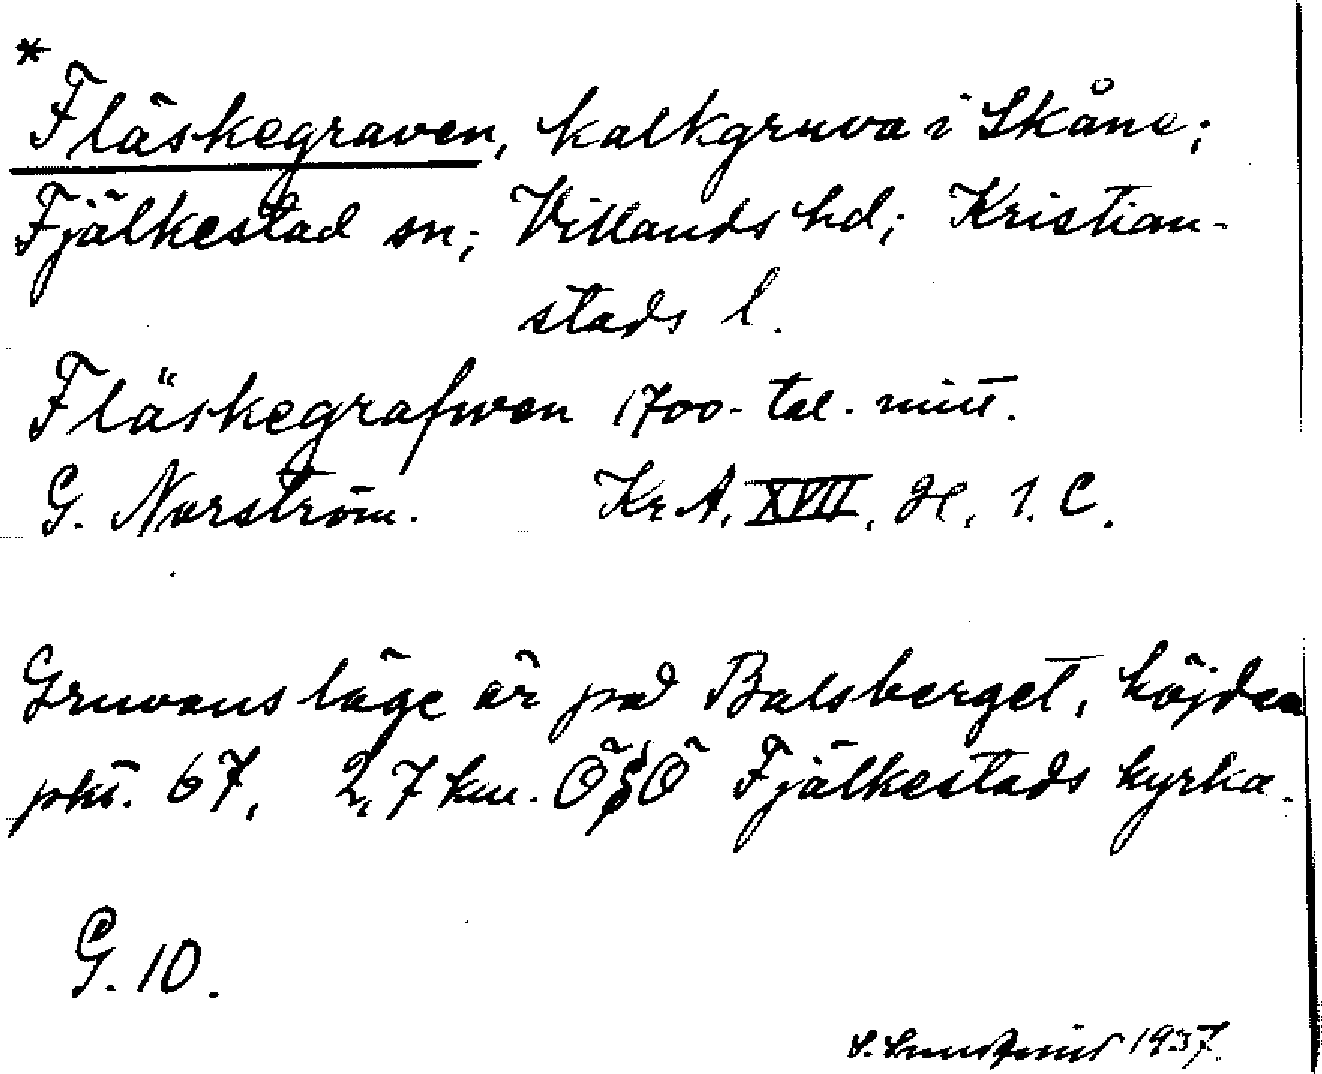 *
Fläskegraven, kalkgruva i Skåne;
Fjälkestad sn; Villands hd; Kristian-
stads l.
Fläskegrafwen 1700-tal. mitt.
G. Norström. Kr.A. XVII, H, 1. C.
Gruvans läge är på Balsberget, höjden
pkt. 67, 2,7 km. ÖSÖ Fjälkestads kyrka.
G. 10.
1937.